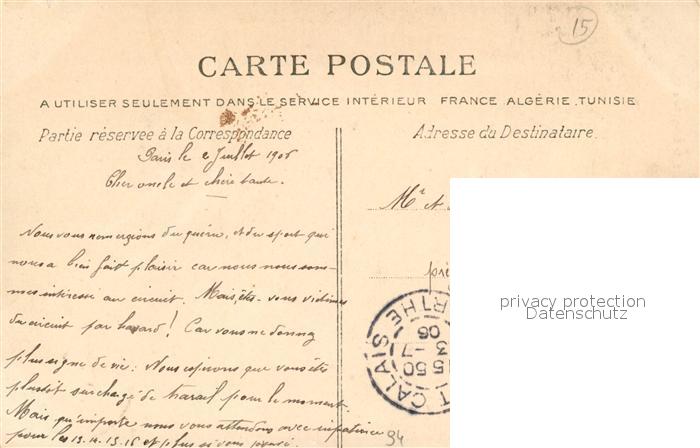 15
CARTE POSTALE
A UTILISER SEULEMENT DANS LE SERVICE INTÉRIEUR FRANCE ALGÉRIE.TUNISIE
Partie réservée à la Correspondance
Adresse du Destinataire.
Paris le 2 Juillet 1906
Cher oncle et chère tante.
Mr et
Nous vous remercions du guérin, et du sport qui
nous a bien fait plaisir car nous nous som-
mes intéressé au circuit. Mais êtes-vous victimes
du circuit par hasard! Car vous ne donnez
plus signe de vie. Nous espérons que vous êtes
plustôt surchargé de travail pour le moment.
Mais qu'importe nous vous attendons avec impatience
pour les 13.14.15.16 et plus si vous pouvez.
94
privacy protection
Datenschutz
T CALAIS
RTHE
5 50
3 -7
06